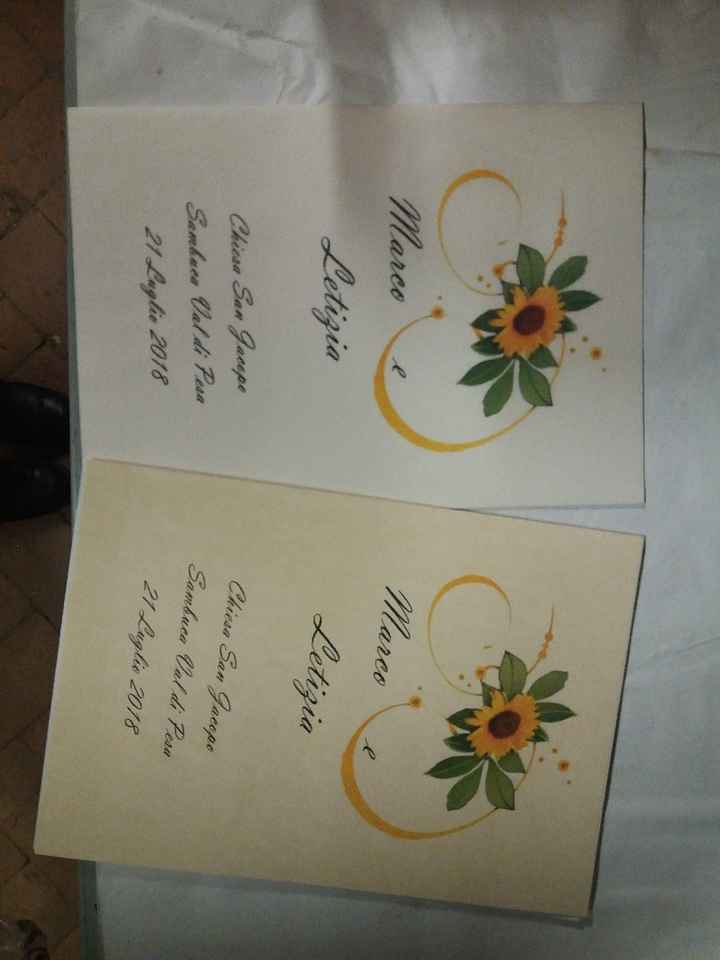 Marco
e
Letizia
Chiesa San Jacopo
Sambuca Val di Pesa
21 Luglio 2018
Marco
e
Letizia
Chiesa San Jacopo
Sambuca Val di Pesa
21 Luglio 2018